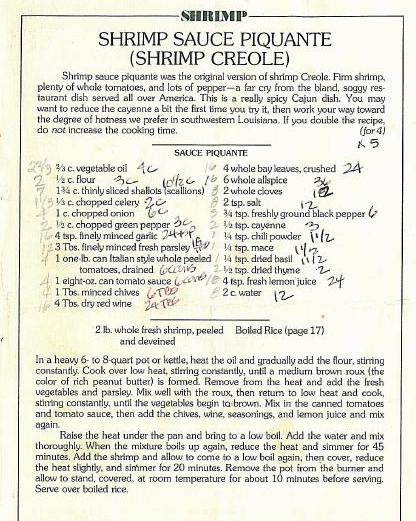 SHRIMP
SHRIMP SAUCE PIQUANTE
(SHRIMP CREOLE)
Shrimp sauce piquante was the original version of shrimp Creole. Firm shrimp,
plenty of whole tomatoes, and lots of pepper—a far cry from the bland, soggy res-
taurant dish served all over America. This is a really spicy Cajun dish. You may
want to reduce the cayenne a bit the first time you try it, then work your way toward
the degree of hotness we prefer in southwestern Louisiana. If you double the recipe,
do not increase the cooking time.
(for 4)
x 5
SAUCE PIQUANTE
⅔ c. vegetable oil 4c
½ c. flour 3c
1¾ c. thinly sliced shallots (scallions) 10½c
⅓ c. chopped celery 2c
1 c. chopped onion 6c
½ c. chopped green pepper 3c
4 tsp. finely minced garlic
3 Tbs. finely minced fresh parsley
1 one-lb. can Italian style whole peeled
tomatoes, drained 6 cans
1 eight-oz. can tomato sauce 6 cans
1 Tbs. minced chives 6 Tbs
4 Tbs. dry red wine 24 Tbs
4 whole bay leaves, crushed 24
6 whole allspice 36
2 whole cloves 12
2 tsp. salt 12
¾ tsp. freshly ground black pepper 6
½ tsp. cayenne 3
¼ tsp. chili powder 1½
¼ tsp. mace 1½
¼ tsp. dried basil 1½
½ tsp. dried thyme 2
4 tsp. fresh lemon juice 24
2 c. water 12
2 lb. whole fresh shrimp, peeled
and deveined
Boiled Rice (page 17)
In a heavy 6- to 8-quart pot or kettle, heat the oil and gradually add the flour, stirring
constantly. Cook over low heat, stirring constantly, until a medium brown roux (the
color of rich peanut butter) is formed. Remove from the heat and add the fresh
vegetables and parsley. Mix well with the roux, then return to low heat and cook,
stirring constantly, until the vegetables begin to brown. Mix in the canned tomatoes
and tomato sauce, then add the chives, wine, seasonings, and lemon juice and mix
again.
Raise the heat under the pan and bring to a low boil. Add the water and mix
thoroughly. When the mixture boils up again, reduce the heat and simmer for 45
minutes. Add the shrimp and allow to come to a low boil again, then cover, reduce
the heat slightly, and simmer for 20 minutes. Remove the pot from the burner and
allow to stand, covered, at room temperature for about 10 minutes before serving.
Serve over boiled rice.